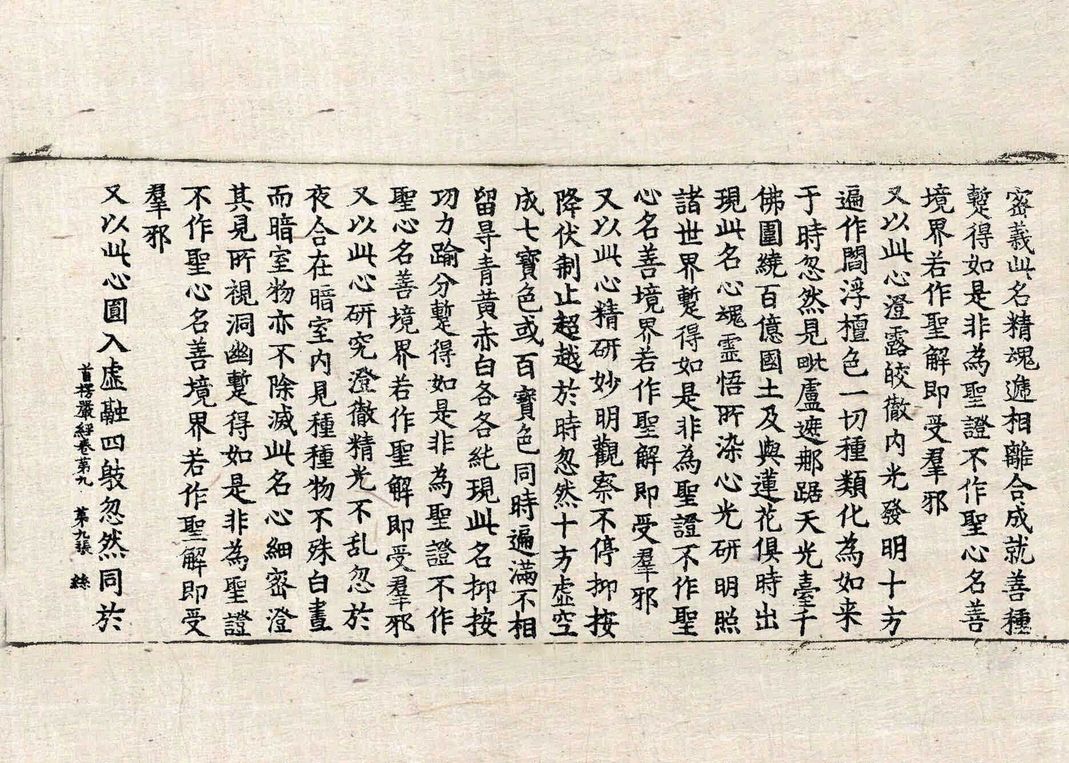 密義此名精魂遞相離合成就善種
蹔得如是非為聖證不作聖心名善
境界若作聖解即受羣邪
又以此心澄露皎徹内光發明十方
遍作閻浮檀色一切種類化為如来
于時忽然見毗盧遮那踞天光臺千
佛圍繞百億國土及與蓮花俱時出
現此名心魂霊悟所染心光研明照
諸世界蹔得如是非為聖證不作聖
心名善境界若作聖解即受羣邪
又以此心精研妙明觀察不停抑按
降伏制止超越於時忽然十方虚空
成七寶色或百寶色同時遍滿不相
留㝵青黄赤白各各純現此名抑按
功力踰分蹔得如是非為聖證不作
聖心名善境界若作聖解即受羣邪
又以此心研究澄徹精光不乱忽於
夜合在暗室内見種種物不殊白晝
而暗室物亦不除滅此名心細密澄
其見所視洞幽蹔得如是非為聖證
不作聖心名善境界若作聖解即受
羣邪
又以此心圓入虚融四躰忽然同於
首楞嚴經卷第九 第九張 絲